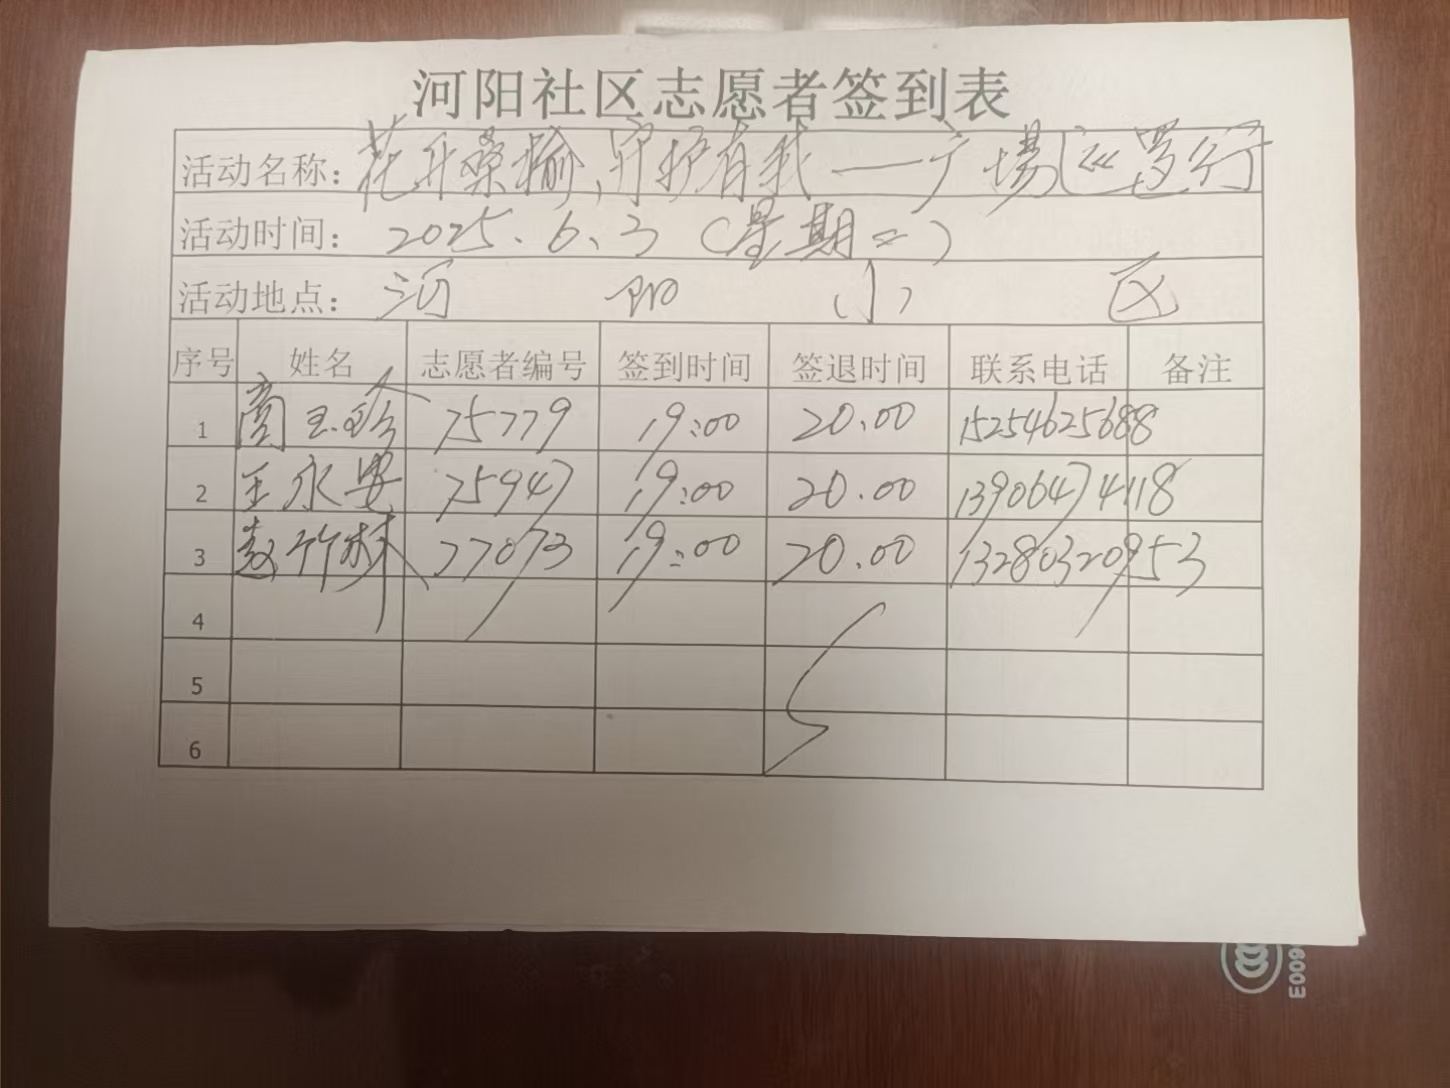 河阳社区志愿者签到表
活动名称: 花开桑榆、守护有我——广场巡逻行
活动时间: 2025.6.3 (星期二)
活动地点: 河阳小区
序号 姓名 志愿者编号 签到时间 签退时间 联系电话 备注
1 玉珍 75779 19:00 20.00 15254625688
2 王永安 75947 19:00 20.00 13906474118
3 赵竹林 77073 19:00 20.00 13280320953
4
5
6
E009